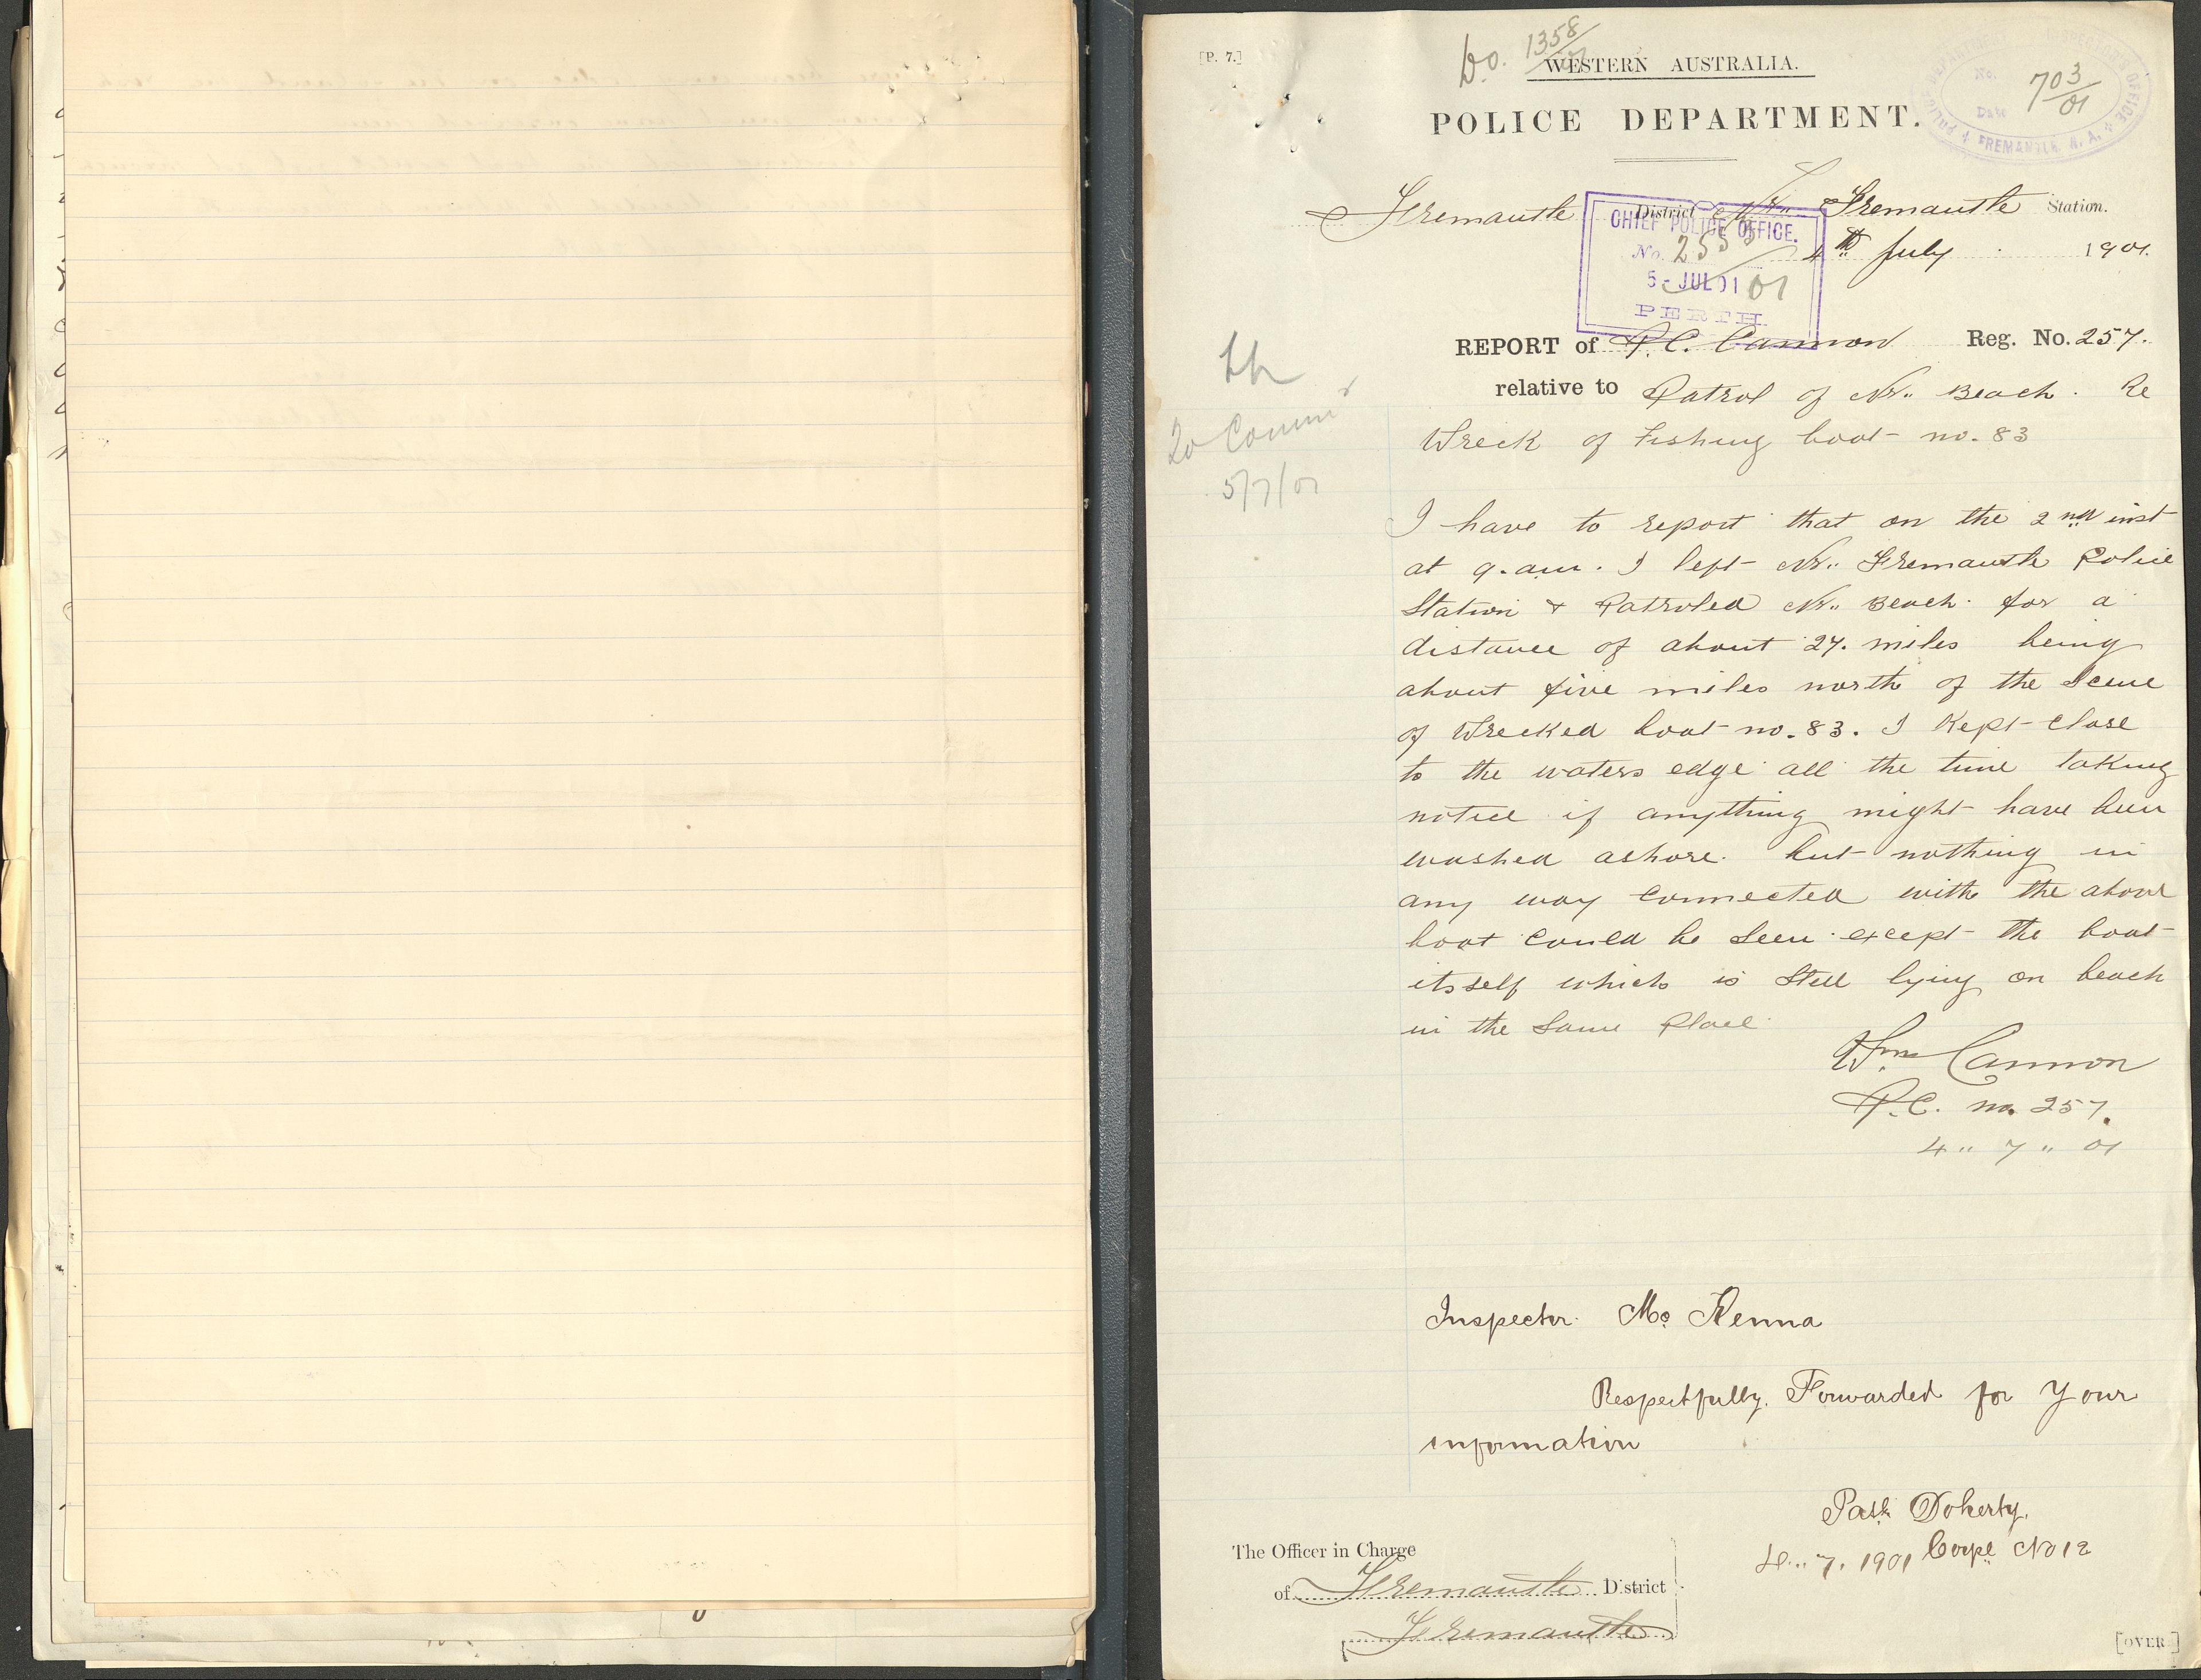 [P. 7.]
Do. 1358/01
WESTERN AUSTRALIA.
POLICE DEPARTMENT.
No. 703/01
Date
POLICE FREMANTLE. W. A.
Fremantle District Nr. Fremantle Station.
4th July 1901.
CHIEF POLICE OFFICE.
No. 2553/01
5 - JUL 01
PERTH
REPORT of P.C. Cannon Reg. No. 257.
relative to Patrol of Nr. Beach. Re
Wreck of Fishing boat no. 83
To Commr
5/7/01
I have to report that on the 2nd inst
at 9. am. I left Nr. Fremantle Police
Station & Patroled Nr. Beach for a
distance of about 27. miles being
about five miles north of the Scene
of Wrecked boat no. 83. I Kept Close
to the waters edge all the time taking
notice if anything might have been
washed ashore. but nothing in
any way connected with the above
boat could be seen except the boat
itsself which is Still lying on beach
in the Same Place.
Wm Cannon
P.C. no. 257.
4 " 7 " 01
Inspector Mc Kenna
Respectfully. Forwarded for Your
information
Patk Doherty.
Corpl No 12
4.. 7. 1901
The Officer in Charge
of Fremantle District
Fremantle
[OVER.]